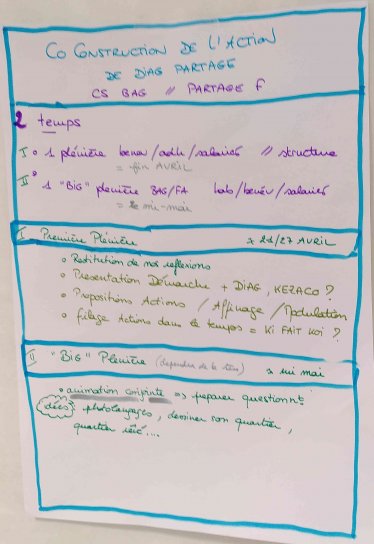 CO CONSTRUCTION DE L'ACTION
DE DIAG PARTAGE
CS BAG // PARTAGE F
2 temps
I • 1 plénière benev/adh/salariés // structure
= fin AVRIL
II • 1 "BIG" plénière BAG/FA hab/benév/salariés
= mi-mai
I Première Plénière 21/27 AVRIL
• Restitution de nos réflexions
• Présentation Démarche + DIAG, KEZACO ?
• Propositions Actions / Affinage / Modulation
• filage Actions dans le temps = Ki FAIT KOI ?
II "BIG" Plénière (dépendra de la) mi mai
• animation conjointe => préparer questionnt
idées photolangages, dessiner son quartier,
quartier rêvé....